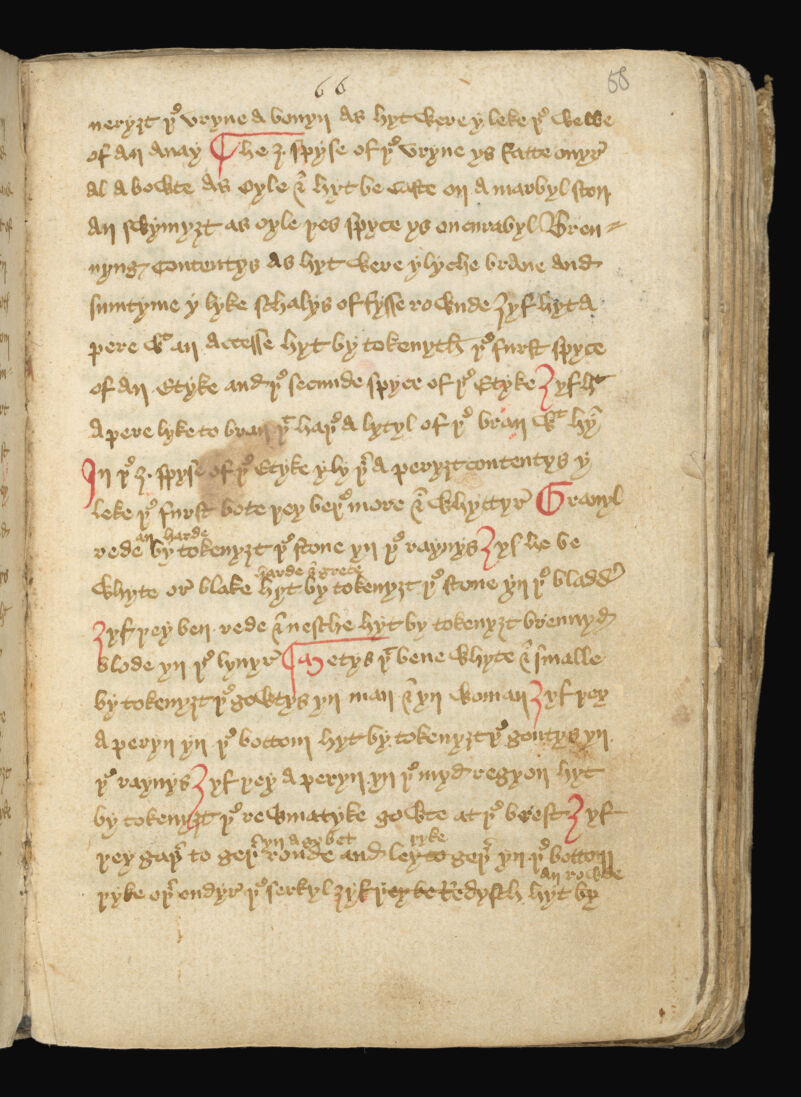 66 58
neryȝt þe vryne a bouyn as hyt were y leke þe welle
of an anay The 3. spyse of þe vryne ys fatte ouyr
al a bowte as oyle & hyt be caste on a marbyl ston
an swymyȝt as oyle þes spyce ys oncurabyl Bren
nyng contentys as hyt were ylyche brane and
sumtyme y lyke schalys of fysse rownde ȝyf hyt a
pere wt an accesse hyt by tokenyth þe furst spyce
of an Etyke and þe secunde spyce of þe Etyke ȝyf ht
a pere lyke to bran þt haþe a lytyl of þe bran wt hȳ
In þe 3. spyse of þe Etyke yly þt a peryȝt contentys y
leke þe furst bote þey beþe more & whyttyr Grauyl
rede an harde by tokenyȝt þe stone yn þe raynys ȝyf he be
whyte or blake harde & grete hyt by tokenyȝt þe stone yn þe bladdr
ȝyf þey ben rede & nesche hyt by tokenyȝt brennyd
blode yn þe lyuyr Metys þt bene whyte & smalle
by tokenyȝt þe gowtys yn man & yn woman ȝyf þey
a peryn yn þe bottom hyt by tokenyȝt þe goutys yn
þe raynys ȝyf þey a peryn yn þe myd regyon hyt
by tokenyȝt þe rewmatyke gowte at þe brest ȝyf
þey gaþr to geþr & yn a gobet ronde and ley to geþr þyke yn þe bottom
þyke oþr ondyr þe serkyl ȝyf þey be Redysch an rowde hyt by